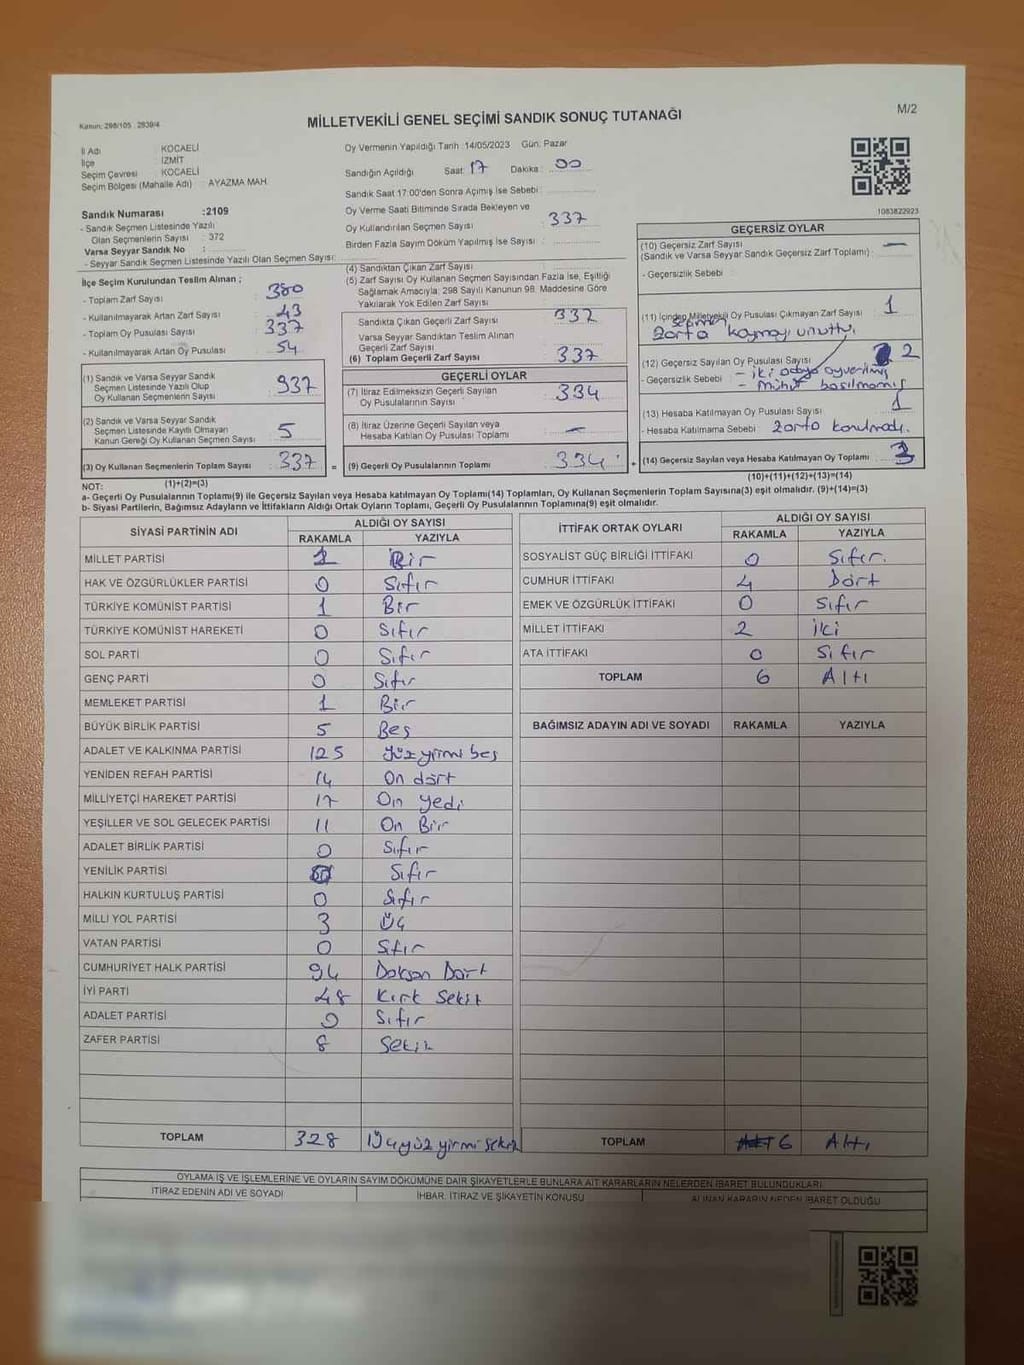 Kanun: 298/105 : 2839/4
MİLLETVEKİLİ GENEL SEÇİMİ SANDIK SONUÇ TUTANAĞI
M/2
İl Adı : KOCAELİ
İlçe : İZMİT
Seçim Çevresi : KOCAELİ
Seçim Bölgesi (Mahalle Adı) : AYAZMA MAH.
Oy Vermenin Yapıldığı Tarih :14/05/2023 Gün: Pazar
Sandığın Açıldığı Saat: 17 Dakika : 00
Sandık Saat 17:00'den Sonra Açımış İse Sebebi :
Oy Verme Saati Bitiminde Sırada Bekleyen ve
Oy Kullandırılan Seçmen Sayısı : 337
Birden Fazla Sayım Döküm Yapılmış İse Sayısı :
1083822923
Sandık Numarası :2109
- Sandık Seçmen Listesinde Yazılı
Olan Seçmenlerin Sayısı : 372
Varsa Seyyar Sandık No :
- Seyyar Sandık Seçmen Listesinde Yazılı Olan Seçmen Sayısı:
İlçe Seçim Kurulundan Teslim Alınan ;
- Toplam Zarf Sayısı : 380
- Kullanılmayarak Artan Zarf Sayısı : 43
- Toplam Oy Pusulası Sayısı : 337
- Kullanılmayarak Artan Oy Pusulası : 54
(1) Sandık ve Varsa Seyyar Sandık
Seçmen Listesinde Yazılı Olup
Oy Kullanan Seçmenlerin Sayısı : 937
(2) Sandık ve Varsa Seyyar Sandık
Seçmen Listesinde Kayıtlı Olmayan
Kanun Gereği Oy Kullanan Seçmen Sayısı : 5
(3) Oy Kullanan Seçmenlerin Toplam Sayısı : 337 =
(1)+(2)=(3)
(4) Sandıktan Çıkan Zarf Sayısı :
(5) Zarf Sayısı Oy Kullanan Seçmen Sayısından Fazla İse, Eşitliği
Sağlamak Amacıyla; 298 Sayılı Kanunun 98. Maddesine Göre
Yakılarak Yok Edilen Zarf Sayısı :
Sandıkta Çıkan Geçerli Zarf Sayısı : 337
Varsa Seyyar Sandıktan Teslim Alınan
Geçerli Zarf Sayısı :
(6) Toplam Geçerli Zarf Sayısı : 337
GEÇERLİ OYLAR
(7) İtiraz Edilmeksizin Geçerli Sayılan
Oy Pusulalarının Sayısı : 334
(8) İtiraz Üzerine Geçerli Sayılan veya
Hesaba Katılan Oy Pusulası Toplamı : —
(9) Geçerli Oy Pusulalarının Toplamı : 334 +
GEÇERSİZ OYLAR
(10) Geçersiz Zarf Sayısı —
(Sandık ve Varsa Seyyar Sandık Geçersiz Zarf Toplamı) :
- Geçersizlik Sebebi :
(11) İçinden Milletvekili Oy Pusulası Çıkmayan Zarf Sayısı : 1
seçmen
zarfa koymayı unuttu.
(12) Geçersiz Sayılan Oy Pusulası Sayısı 2
- Geçersizlik Sebebi : - iki adaya oy verilmiş
- mühür basılmamış
(13) Hesaba Katılmayan Oy Pusulası Sayısı : 1
- Hesaba Katılmama Sebebi : Zarfa konulmadı.
(14) Geçersiz Sayılan veya Hesaba Katılmayan Oy Toplamı : 3
(10)+(11)+(12)+(13)=(14)
NOT:
a- Geçerli Oy Pusulalarının Toplamı(9) ile Geçersiz Sayılan veya Hesaba katılmayan Oy Toplamı(14) Toplamları, Oy Kullanan Seçmenlerin Toplam Sayısına(3) eşit olmalıdır. (9)+(14)=(3)
b- Siyasi Partilerin, Bağımsız Adayların ve İttifakların Aldığı Ortak Oyların Toplamı, Geçerli Oy Pusulalarının Toplamına(9) eşit olmalıdır.
SİYASİ PARTİNİN ADI ALDIĞI OY SAYISI
RAKAMLA YAZIYLA
MİLLET PARTİSİ 1 Bir
HAK VE ÖZGÜRLÜKLER PARTİSİ 0 Sıfır
TÜRKİYE KOMÜNİST PARTİSİ 1 Bir
TÜRKİYE KOMÜNİST HAREKETİ 0 Sıfır
SOL PARTİ 0 Sıfır
GENÇ PARTİ 0 Sıfır
MEMLEKET PARTİSİ 1 Bir
BÜYÜK BİRLİK PARTİSİ 5 Beş
ADALET VE KALKINMA PARTİSİ 125 Yüz yirmi beş
YENİDEN REFAH PARTİSİ 14 On dört
MİLLİYETÇİ HAREKET PARTİSİ 17 On yedi
YEŞİLLER VE SOL GELECEK PARTİSİ 11 On Bir
ADALET BİRLİK PARTİSİ 0 Sıfır
YENİLİK PARTİSİ Sıfır
HALKIN KURTULUŞ PARTİSİ 0 Sıfır
MİLLİ YOL PARTİSİ 3 Üç
VATAN PARTİSİ 0 Sıfır
CUMHURİYET HALK PARTİSİ 94 Doksan Dört
İYİ PARTİ 48 Kırk Sekiz
ADALET PARTİSİ 0 Sıfır
ZAFER PARTİSİ 8 Sekiz
TOPLAM 328 Üçyüz yirmi sekiz
İTTİFAK ORTAK OYLARI ALDIĞI OY SAYISI
RAKAMLA YAZIYLA
SOSYALİST GÜÇ BİRLİĞİ İTTİFAKI 0 Sıfır.
CUMHUR İTTİFAKI 4 Dört
EMEK VE ÖZGÜRLÜK İTTİFAKI 0 Sıfır
MİLLET İTTİFAKI 2 İki
ATA İTTİFAKI 0 Sıfır
TOPLAM 6 Altı
BAĞIMSIZ ADAYIN ADI VE SOYADI RAKAMLA YAZIYLA
TOPLAM 6 Altı
OYLAMA İŞ VE İŞLEMLERİNE VE OYLARIN SAYIM DÖKÜMÜNE DAİR ŞİKAYETLERLE BUNLARA AİT KARARLARIN NELERDEN İBARET BULUNDUKLARI
İTİRAZ EDENİN ADI VE SOYADI İHBAR, İTİRAZ VE ŞİKAYETİN KONUSU ALINAN KARARIN NEDEN İBARET OLDUĞU